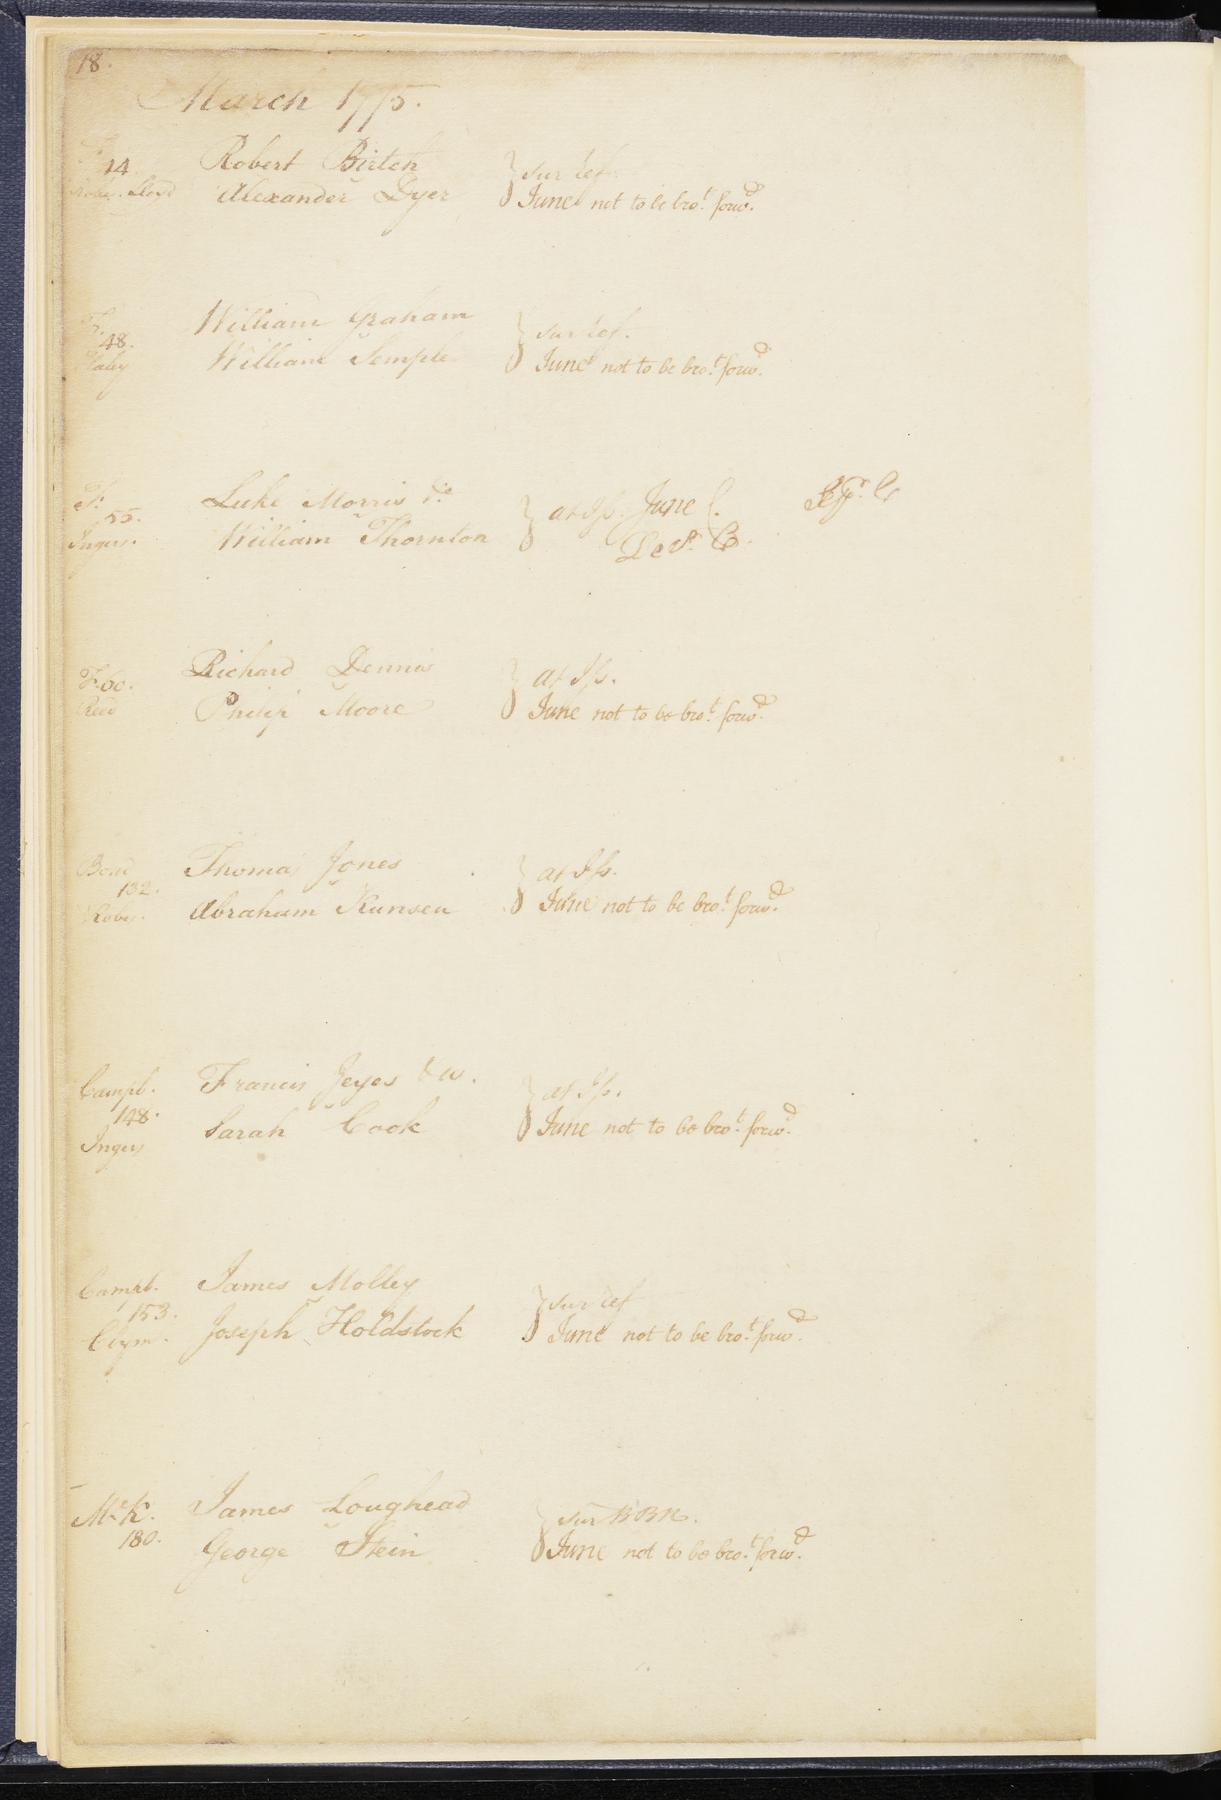 18.
March 1775.
14 Robert Birtch } sur ref.
Lloyd Alexander Dyer June not to be bro.t forw.d
F. William Graham } sur ref.
48. William Semple June not to be bro.t forw.d
F. Luke Morris } at Iss. June C. Sep.r C
55. Ingers. William Thornton Dec.r C.
F. 60. Richard Dennis } at Iss.
Reed Philip Moore June not to be bro.t forw.d
Bond Thomas Jones } at Iss.
132. Rober. Abraham Kunsen June not to be bro.t forw.d
Campb. Francis Jeyes & w. } at Iss.
148. Ingers Sarah Cook June not to be bro.t forw.d
Campb. James Molley } sur ref
153. Clym. Joseph Holdstock June not to be bro.t forw.d
McK. James Loughead } sur
180. George Stein June not to be bro.t forw.d